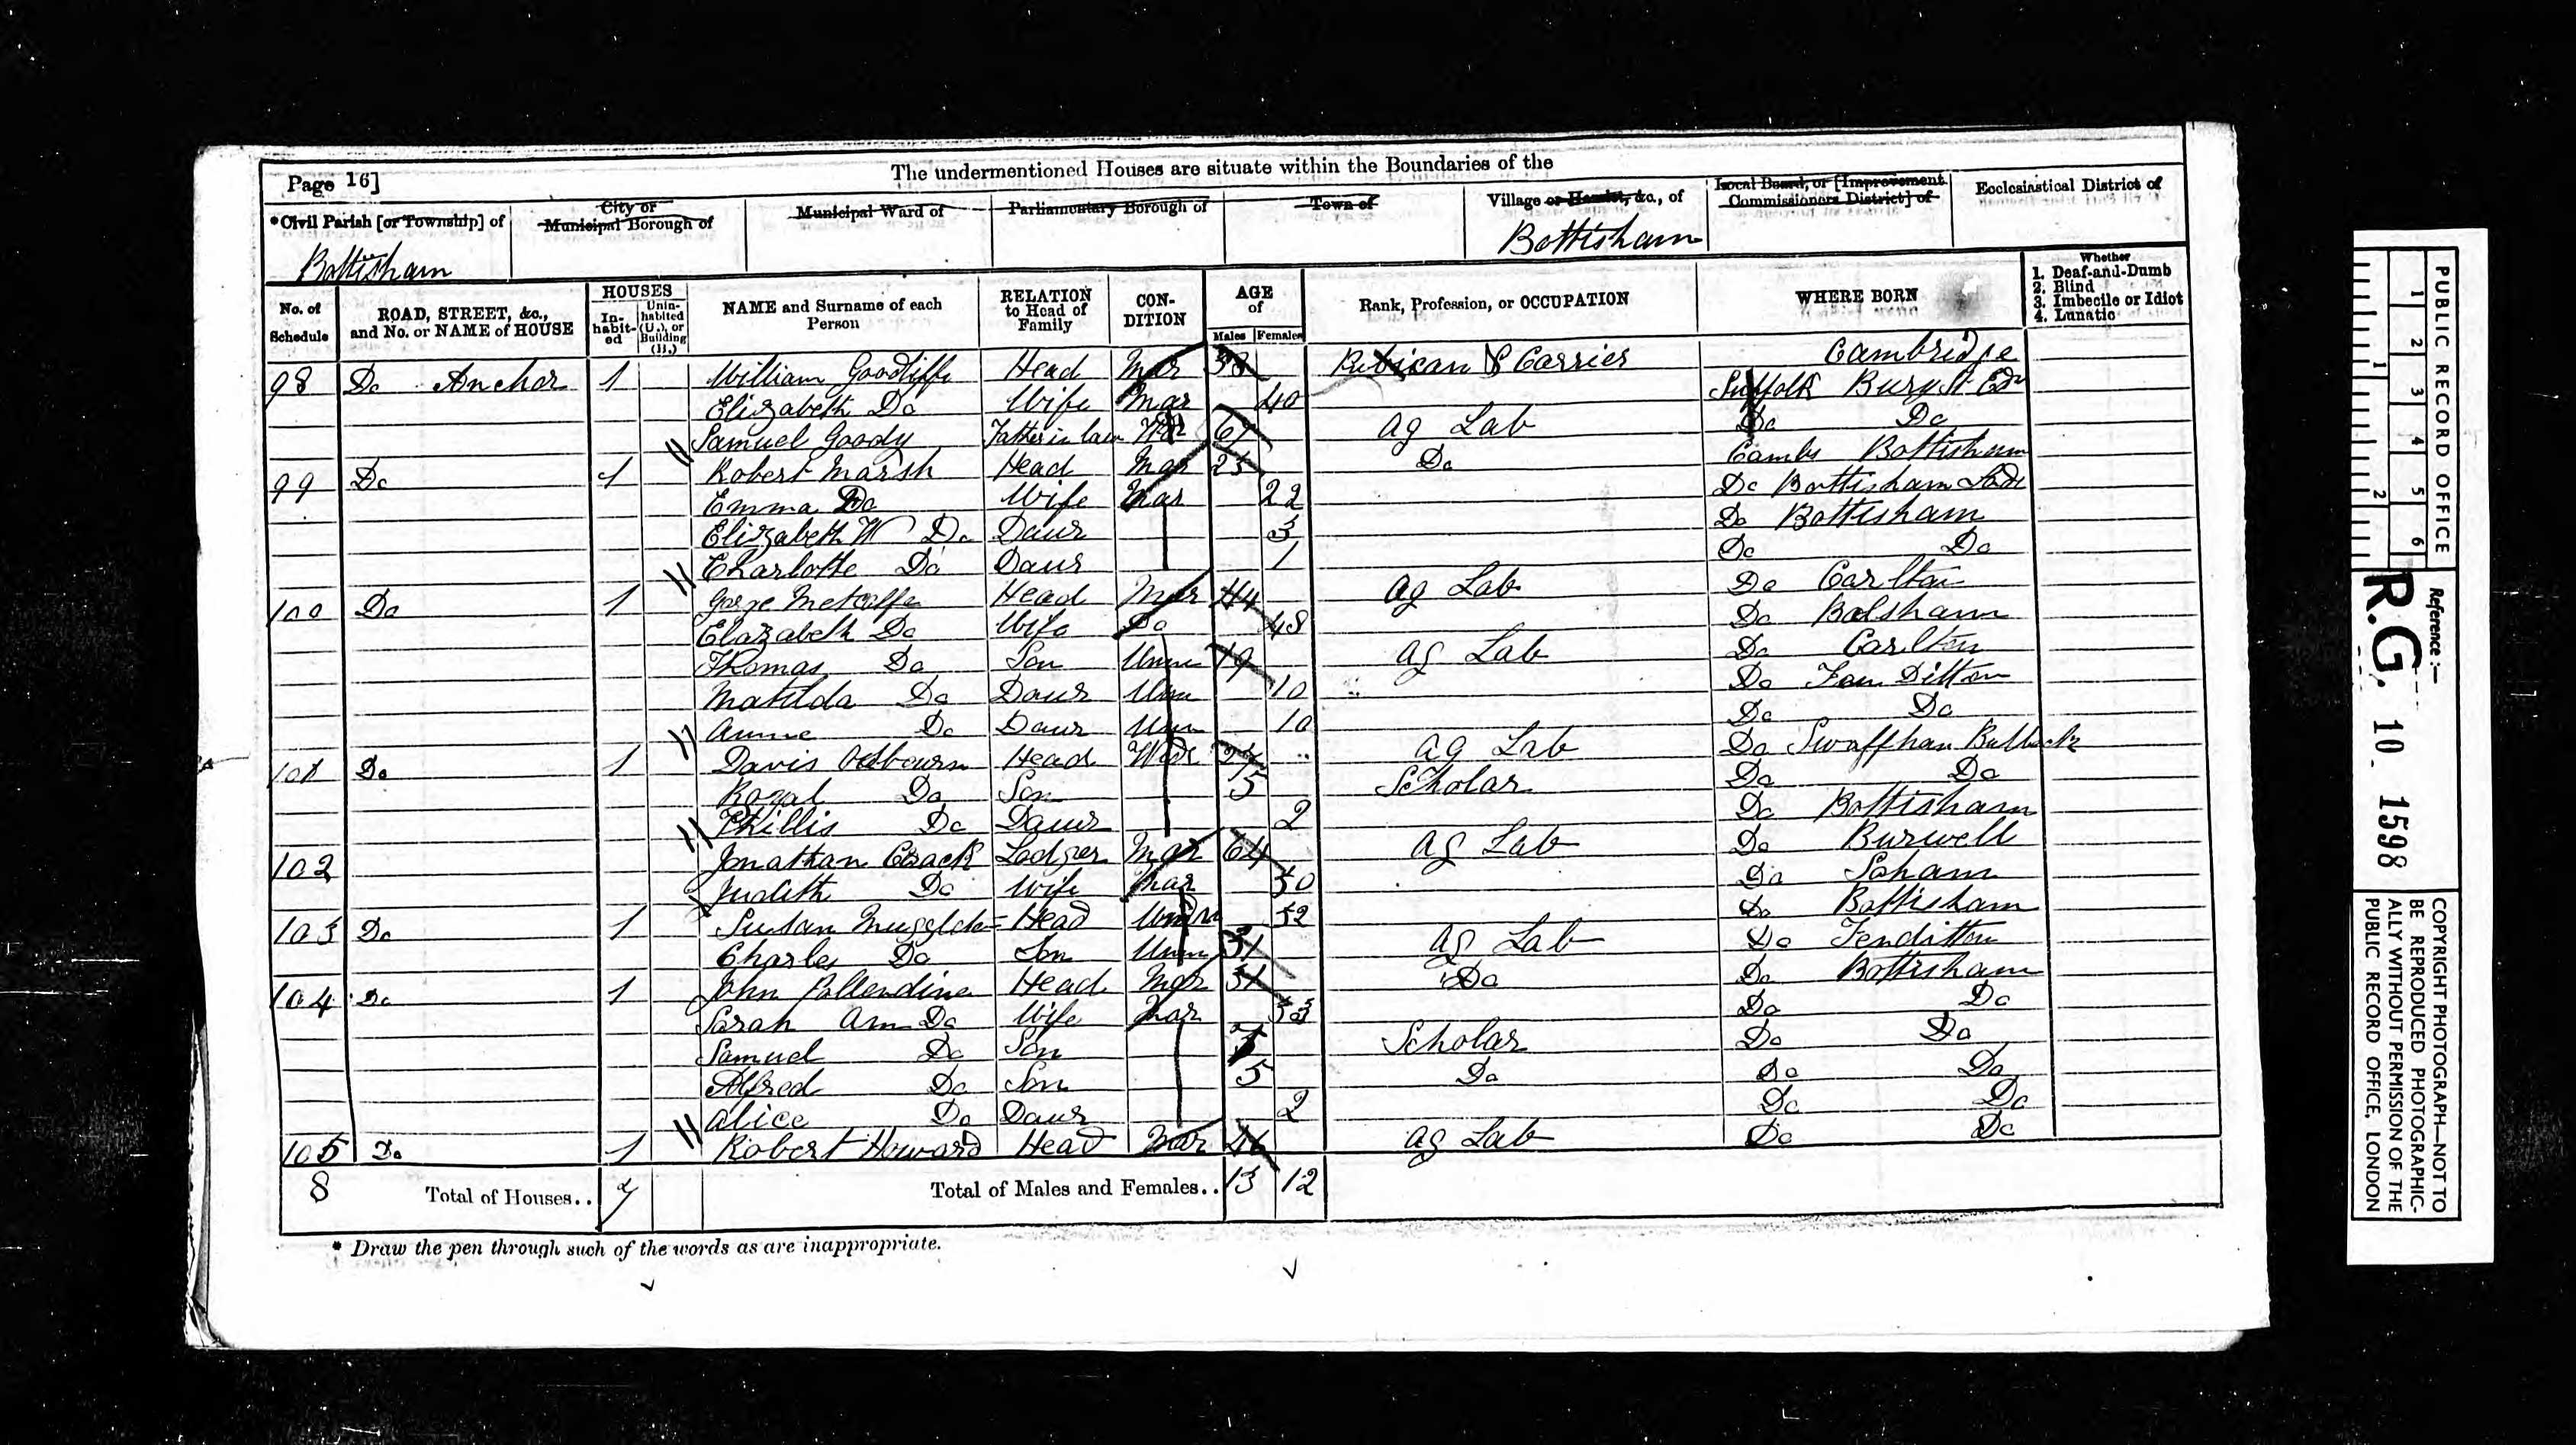 The undermentioned Houses are situate within the Boundaries of the
Page 16]
*Civil Parish [or Township] of
City or Municipal Borough of
Municipal Ward of
Parliamentary Borough of
Town of
Village or Hamlet, &c., of
Local Board, or [Improvement Commissioners District] of
Ecclesiastical District of
Bottisham
Bottisham
No. of Schedule
ROAD, STREET, &c., and No. or NAME of HOUSE
HOUSES
In-habit-ed
Unin-habited (U.), or Building (B.)
NAME and Surname of each Person
RELATION to Head of Family
CON-DITION
AGE of
Males Females
Rank, Profession, or OCCUPATION
WHERE BORN
Whether
1. Deaf-and-Dumb
2. Blind
3. Imbecile or Idiot
4. Lunatic
98 Do Anchor 1 William Goodliffe Head Mar 38 & Carrier Cambridge
Elizabeth Do Wife Mar 40 Suffolk Bury St Ed
Samuel Goody Father in law 67 Ag Lab Do Do
99 Do 1 Robert Marsh Head Mar 25 Do Cambs Bottisham
Emma Do Wife Mar 22 Do Bottisham Lode
Elizabeth W Do Daur 3 Do Bottisham
Charlotte Do Daur 1 Do Do
100 Do 1 Metcalfe Head Mar 44 Ag Lab Do Carlton
Elazabeth Do Wife Do 48 Do Balsham
Thomas Do Son Unm 19 Ag Lab Do Carlton
Matilda Do Daur Unm 10 Do Fen Ditton
Do Daur Unm 10 Do Do
101 Do 1 Davis Head Widr Ag Lab Do Swaffham Bulbeck
Royal Do Son 5 Scholar Do Do
Phillis Do Daur 2 Do Bottisham
102 Jonathan Lodger Mar 64 Ag Lab Do Burwell
Judith Do Wife Mar 50 Do Soham
103 Do 1 Susan Head 52 Do Bottisham
Charles Do Son Unm 31 Ag Lab Do Fenditton
104 Do 1 John Pallendine Head Mar Do Do Bottisham
Sarah Ann Do Wife Mar 33 Do Do
Samuel Do Son 7 Scholar Do Do
Alfred Do Son 5 Do Do Do
Alice Do Daur 2 Do Do
105 Do 1 Robert Howard Head Mar 46 Ag Lab Do Do
8 Total of Houses.. 7 Total of Males and Females.. 13 12
* Draw the pen through such of the words as are inappropriate.
PUBLIC RECORD OFFICE
1 2 3 4 5 6
1 2
Reference:-
R.G. 10 1598
COPYRIGHT PHOTOGRAPH—NOT TO
BE REPRODUCED PHOTOGRAPHIC-
ALLY WITHOUT PERMISSION OF THE
PUBLIC RECORD OFFICE, LONDON